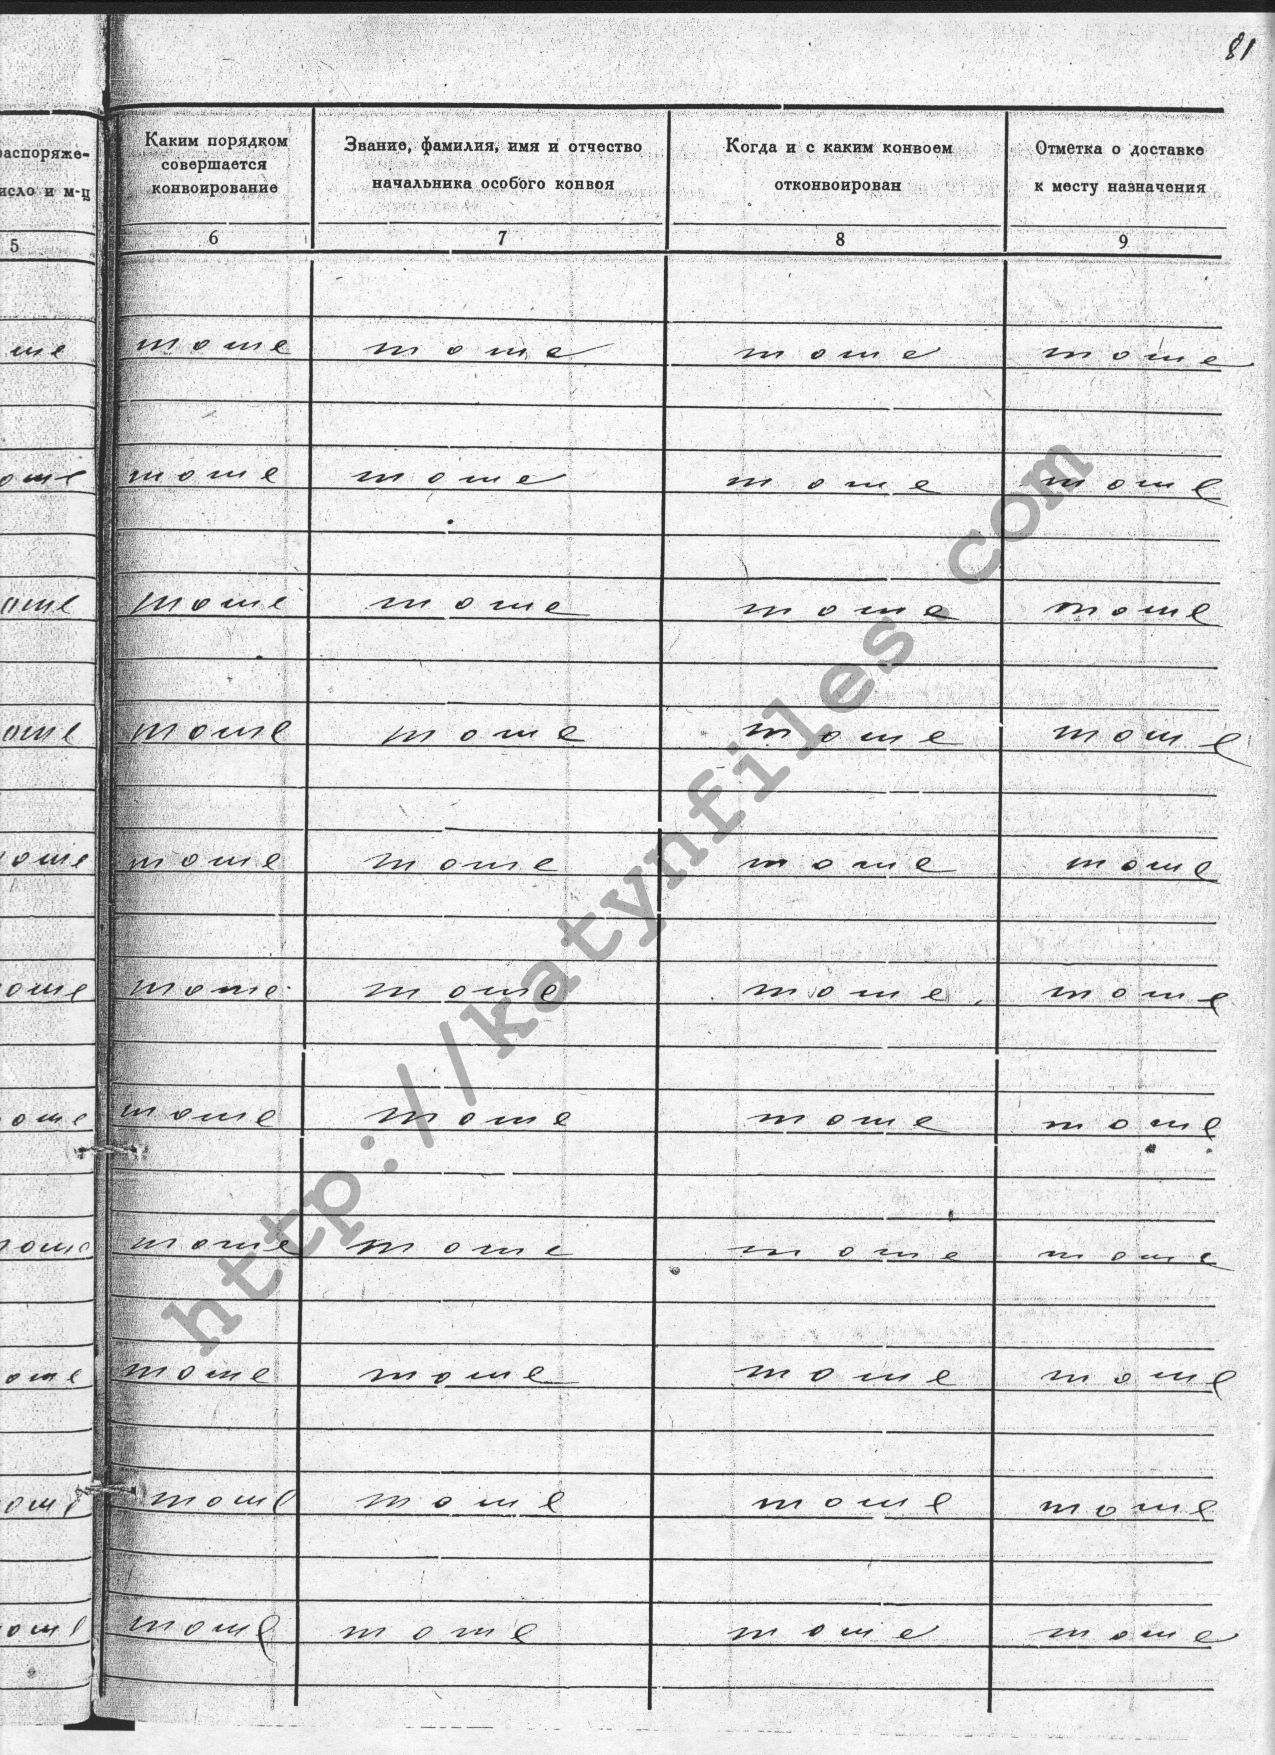 81
аспоряже-
исло и м-ц
5
Каким порядком
совершается
конвоирование
6
Звание, фамилия, имя и отчество
начальника особого конвоя
7
Когда и с каким конвоем
отконвоирован
8
Отметка о доставке
к месту назначения
9
ше тоше тоше тоше тоше
оше тоше тоше тоше тоше
оше тоше тоше тоше тоше
оше тоше тоше тоше тоше
тоше тоше тоше тоше тоше
оше тоше тоше тоше тоше
оше тоше тоше тоше тоше
тоше тоше тоше тоше тоше
оше тоше тоше тоше тоше
оше тоше тоше тоше тоше
тоше тоше тоше тоше тоше
http://katynfiles.com